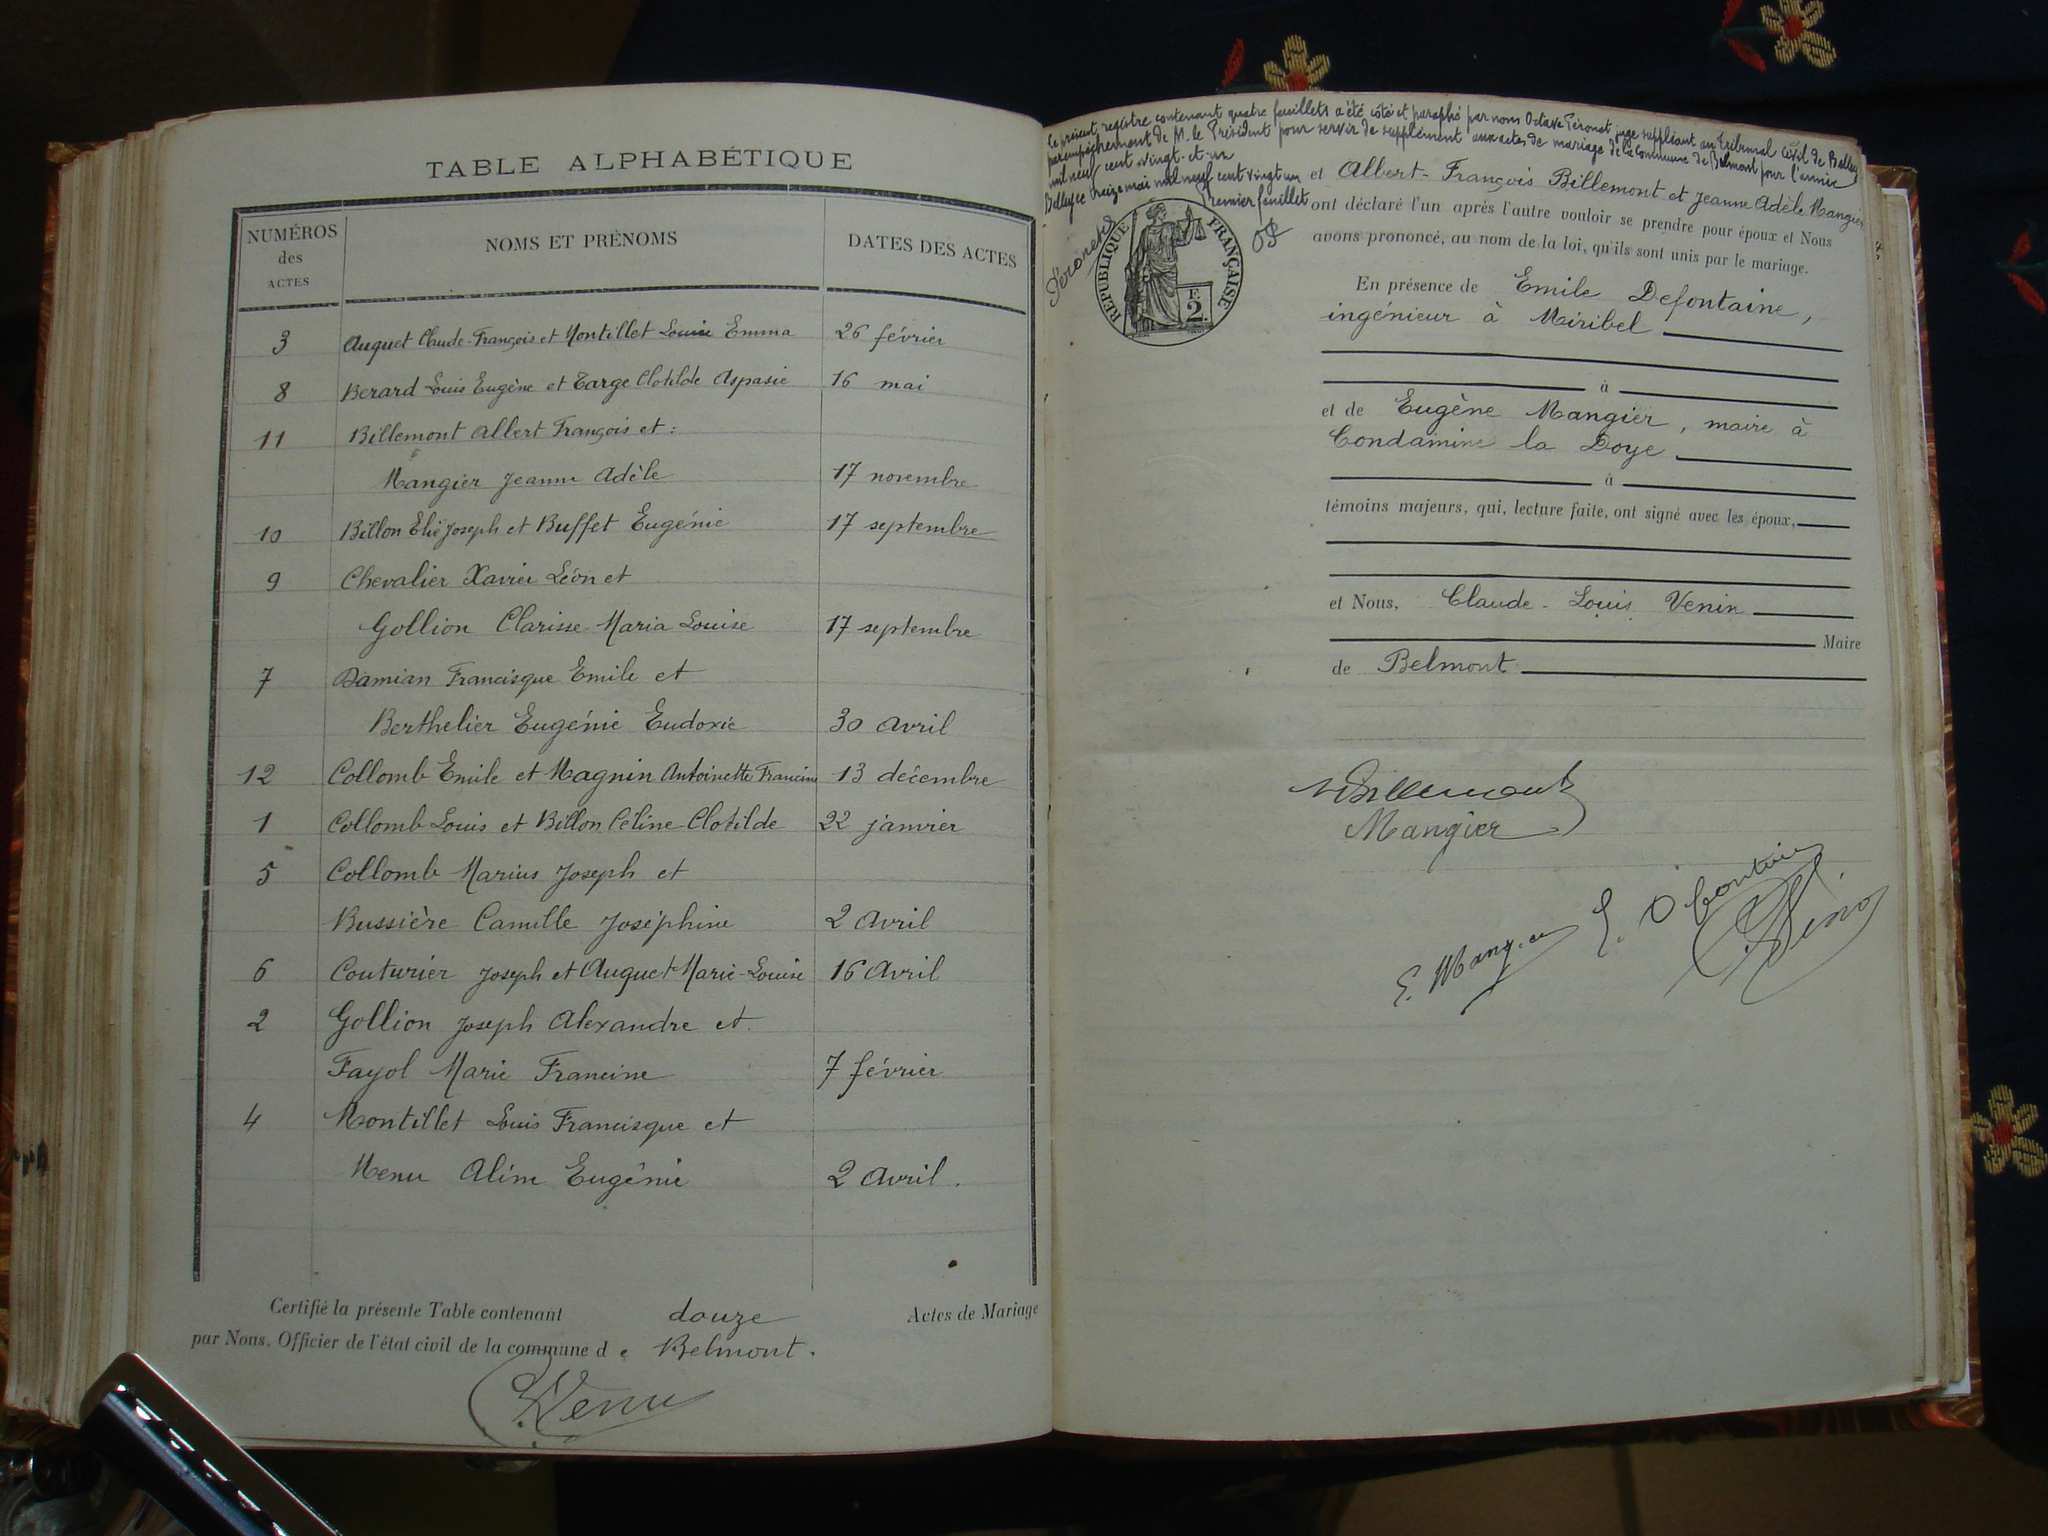 TABLE ALPHABÉTIQUE
NUMÉROS des ACTES NOMS ET PRÉNOMS DATES DES ACTES
3 Auguet Claude-François et Montillet Louise Emma 26 février
8 Berard Louis Eugène et Targe Clotilde Aspasie 16 mai
11 Billemont Albert François et :
Mangier Jeanne Adèle 17 novembre
10 Billon Elie Joseph et Buffet Eugénie 17 septembre
9 Chevalier Xavier Léon et
Gollion Clarisse Maria Louise 17 septembre
7 Damian Francisque Emile et
Berthelier Eugénie Eudoxie 30 avril
12 Collomb Emile et Magnin Antoinette Francine 13 décembre
1 Collomb Louis et Billon Céline Clotilde 22 janvier
5 Collomb Marius Joseph et
Bussière Camille Joséphine 2 avril
6 Couturier Joseph et Auguet Marie-Louise 16 avril
2 Gollion Joseph Alexandre et
Fayol Marie Francine 7 février
4 Montillet Louis Francisque et
Menu Aline Eugénie 2 avril.
Certifié la présente Table contenant douze Actes de Mariage
par Nous, Officier de l'état civil de la commune de Belmont.
Le présent registre contenant quatre feuillets a été coté et paraphé par nous Octave Péronet, juge suppléant au Tribunal Civil de Belley
par empêchement de M. le Président pour servir de supplément aux actes de mariage de la Commune de Belmont pour l'année
mil neuf cent vingt-et-un
Belley ce treize mai mil neuf cent vingt un
Premier feuillet
OP
Péronet
RÉPUBLIQUE FRANÇAISE
F. 2.
et Albert-François Billemont et Jeanne Adèle Mangier
ont déclaré l'un après l'autre vouloir se prendre pour époux et Nous
avons prononcé, au nom de la loi, qu'ils sont unis par le mariage.
En présence de Emile Defontaine,
ingénieur à Miribel
à
et de Eugène Mangier, maire à
Condamine la Doye
à
témoins majeurs, qui, lecture faite, ont signé avec les époux,
et Nous, Claude-Louis Venin
Maire
de Belmont
Billemont
Mangier
E. Defontaine
E. Mangier